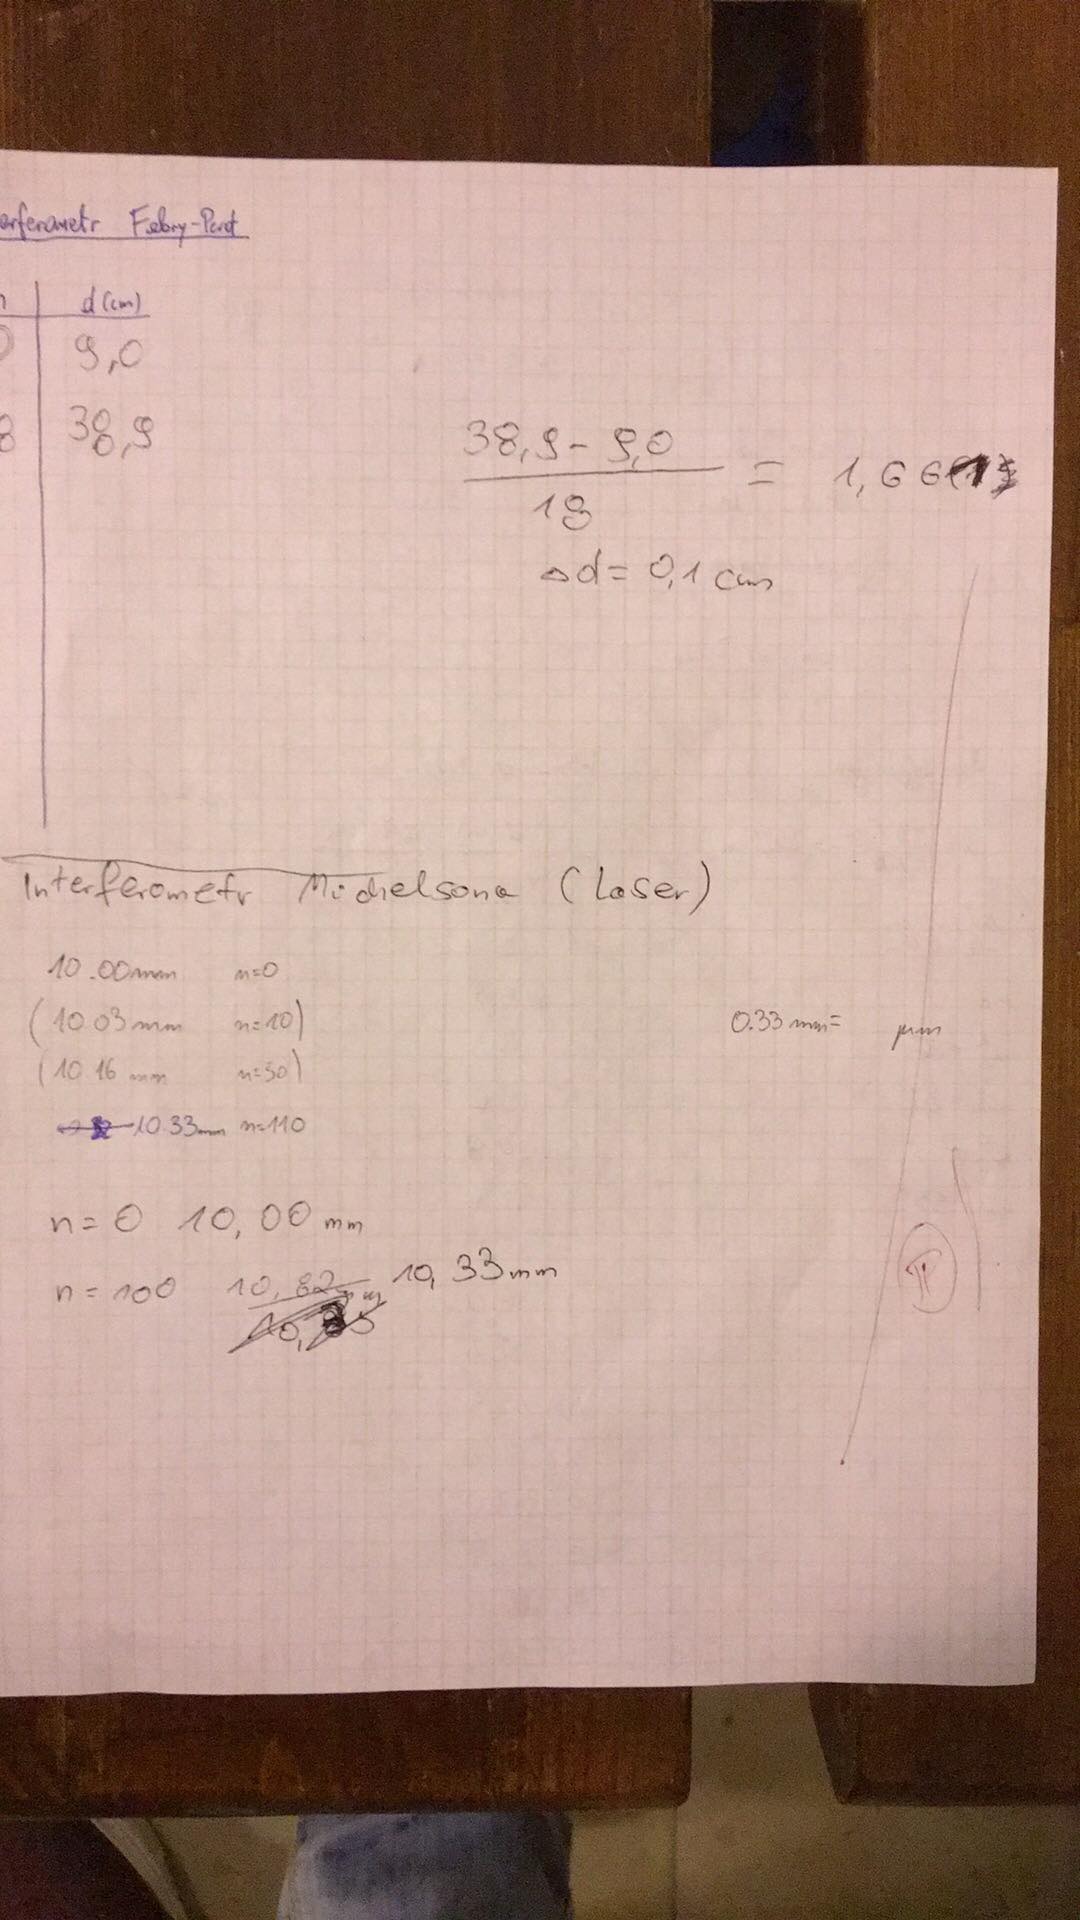 erferometr Fabry-Perot
n d(cm)
0 9,0
8 38,9
38,9 - 9,0
18
= 1,661
Δd = 0,1 cm
Interferometr Michelsona (Laser)
10.00mm n=0
(10.03mm n=10)
(10.16 mm n=50)
10.33mm n=110
0.33 mm= μm
n = 0 10,00 mm
n = 100 10,82 10,33mm